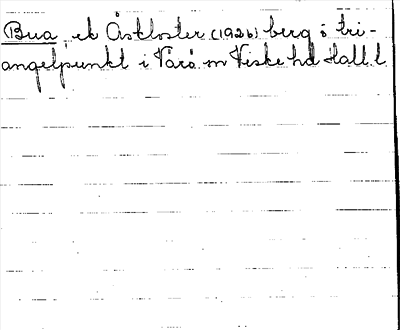 Bua, ek Åskloster (1926) berg o tri-
angelpunkt i Värö sn Viske hd Hall. l